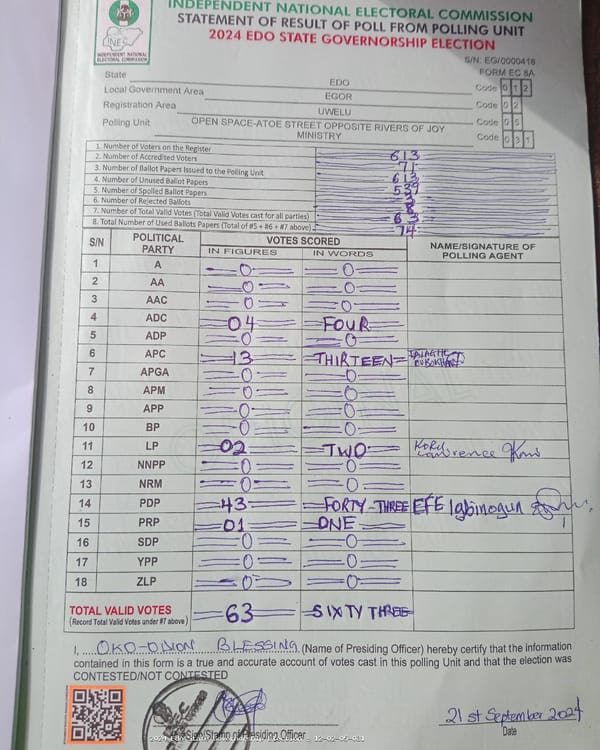 INDEPENDENT NATIONAL ELECTORAL COMMISSION
STATEMENT OF RESULT OF POLL FROM POLLING UNIT
2024 EDO STATE GOVERNORSHIP ELECTION
INEC
INDEPENDENT NATIONAL
ELECTORAL COMMISSION
S/N: EG/0000418
FORM EC 8A
State EDO Code 0 1 2
Local Government Area EGOR Code 0 2
Registration Area UWELU Code 0 5
Polling Unit OPEN SPACE-ATOE STREET OPPOSITE RIVERS OF JOY MINISTRY Code 0 3 1
1. Number of Voters on the Register 613
2. Number of Accredited Voters 71
3. Number of Ballot Papers Issued to the Polling Unit 613
4. Number of Unused Ballot Papers 539
5. Number of Spoiled Ballot Papers 3
6. Number of Rejected Ballots 8
7. Number of Total Valid Votes (Total Valid Votes cast for all parties) 63
8. Total Number of Used Ballots Papers (Total of #5 + #6 + #7 above) 74
S/N POLITICAL PARTY VOTES SCORED NAME/SIGNATURE OF POLLING AGENT
IN FIGURES IN WORDS
1 A 0 0
2 AA 0 0
3 AAC 0 0
4 ADC 04 FOUR
5 ADP 0 0
6 APC 13 THIRTEEN
7 APGA 0 0
8 APM 0 0
9 APP 0 0
10 BP 0 0
11 LP 02 TWO Lawrence
12 NNPP 0 0
13 NRM 0 0
14 PDP 43 FORTY-THREE EFE Igbinogun
15 PRP 01 ONE
16 SDP 0 0
17 YPP 0 0
18 ZLP 0 0
TOTAL VALID VOTES 63 SIXTY THREE
(Record Total Valid Votes under #7 above)
I, OKO-DIXON BLESSING (Name of Presiding Officer) hereby certify that the information
contained in this form is a true and accurate account of votes cast in this polling Unit and that the election was
CONTESTED/NOT CONTESTED
Sign/Stamp of Presiding Officer
21st September 2024
Date